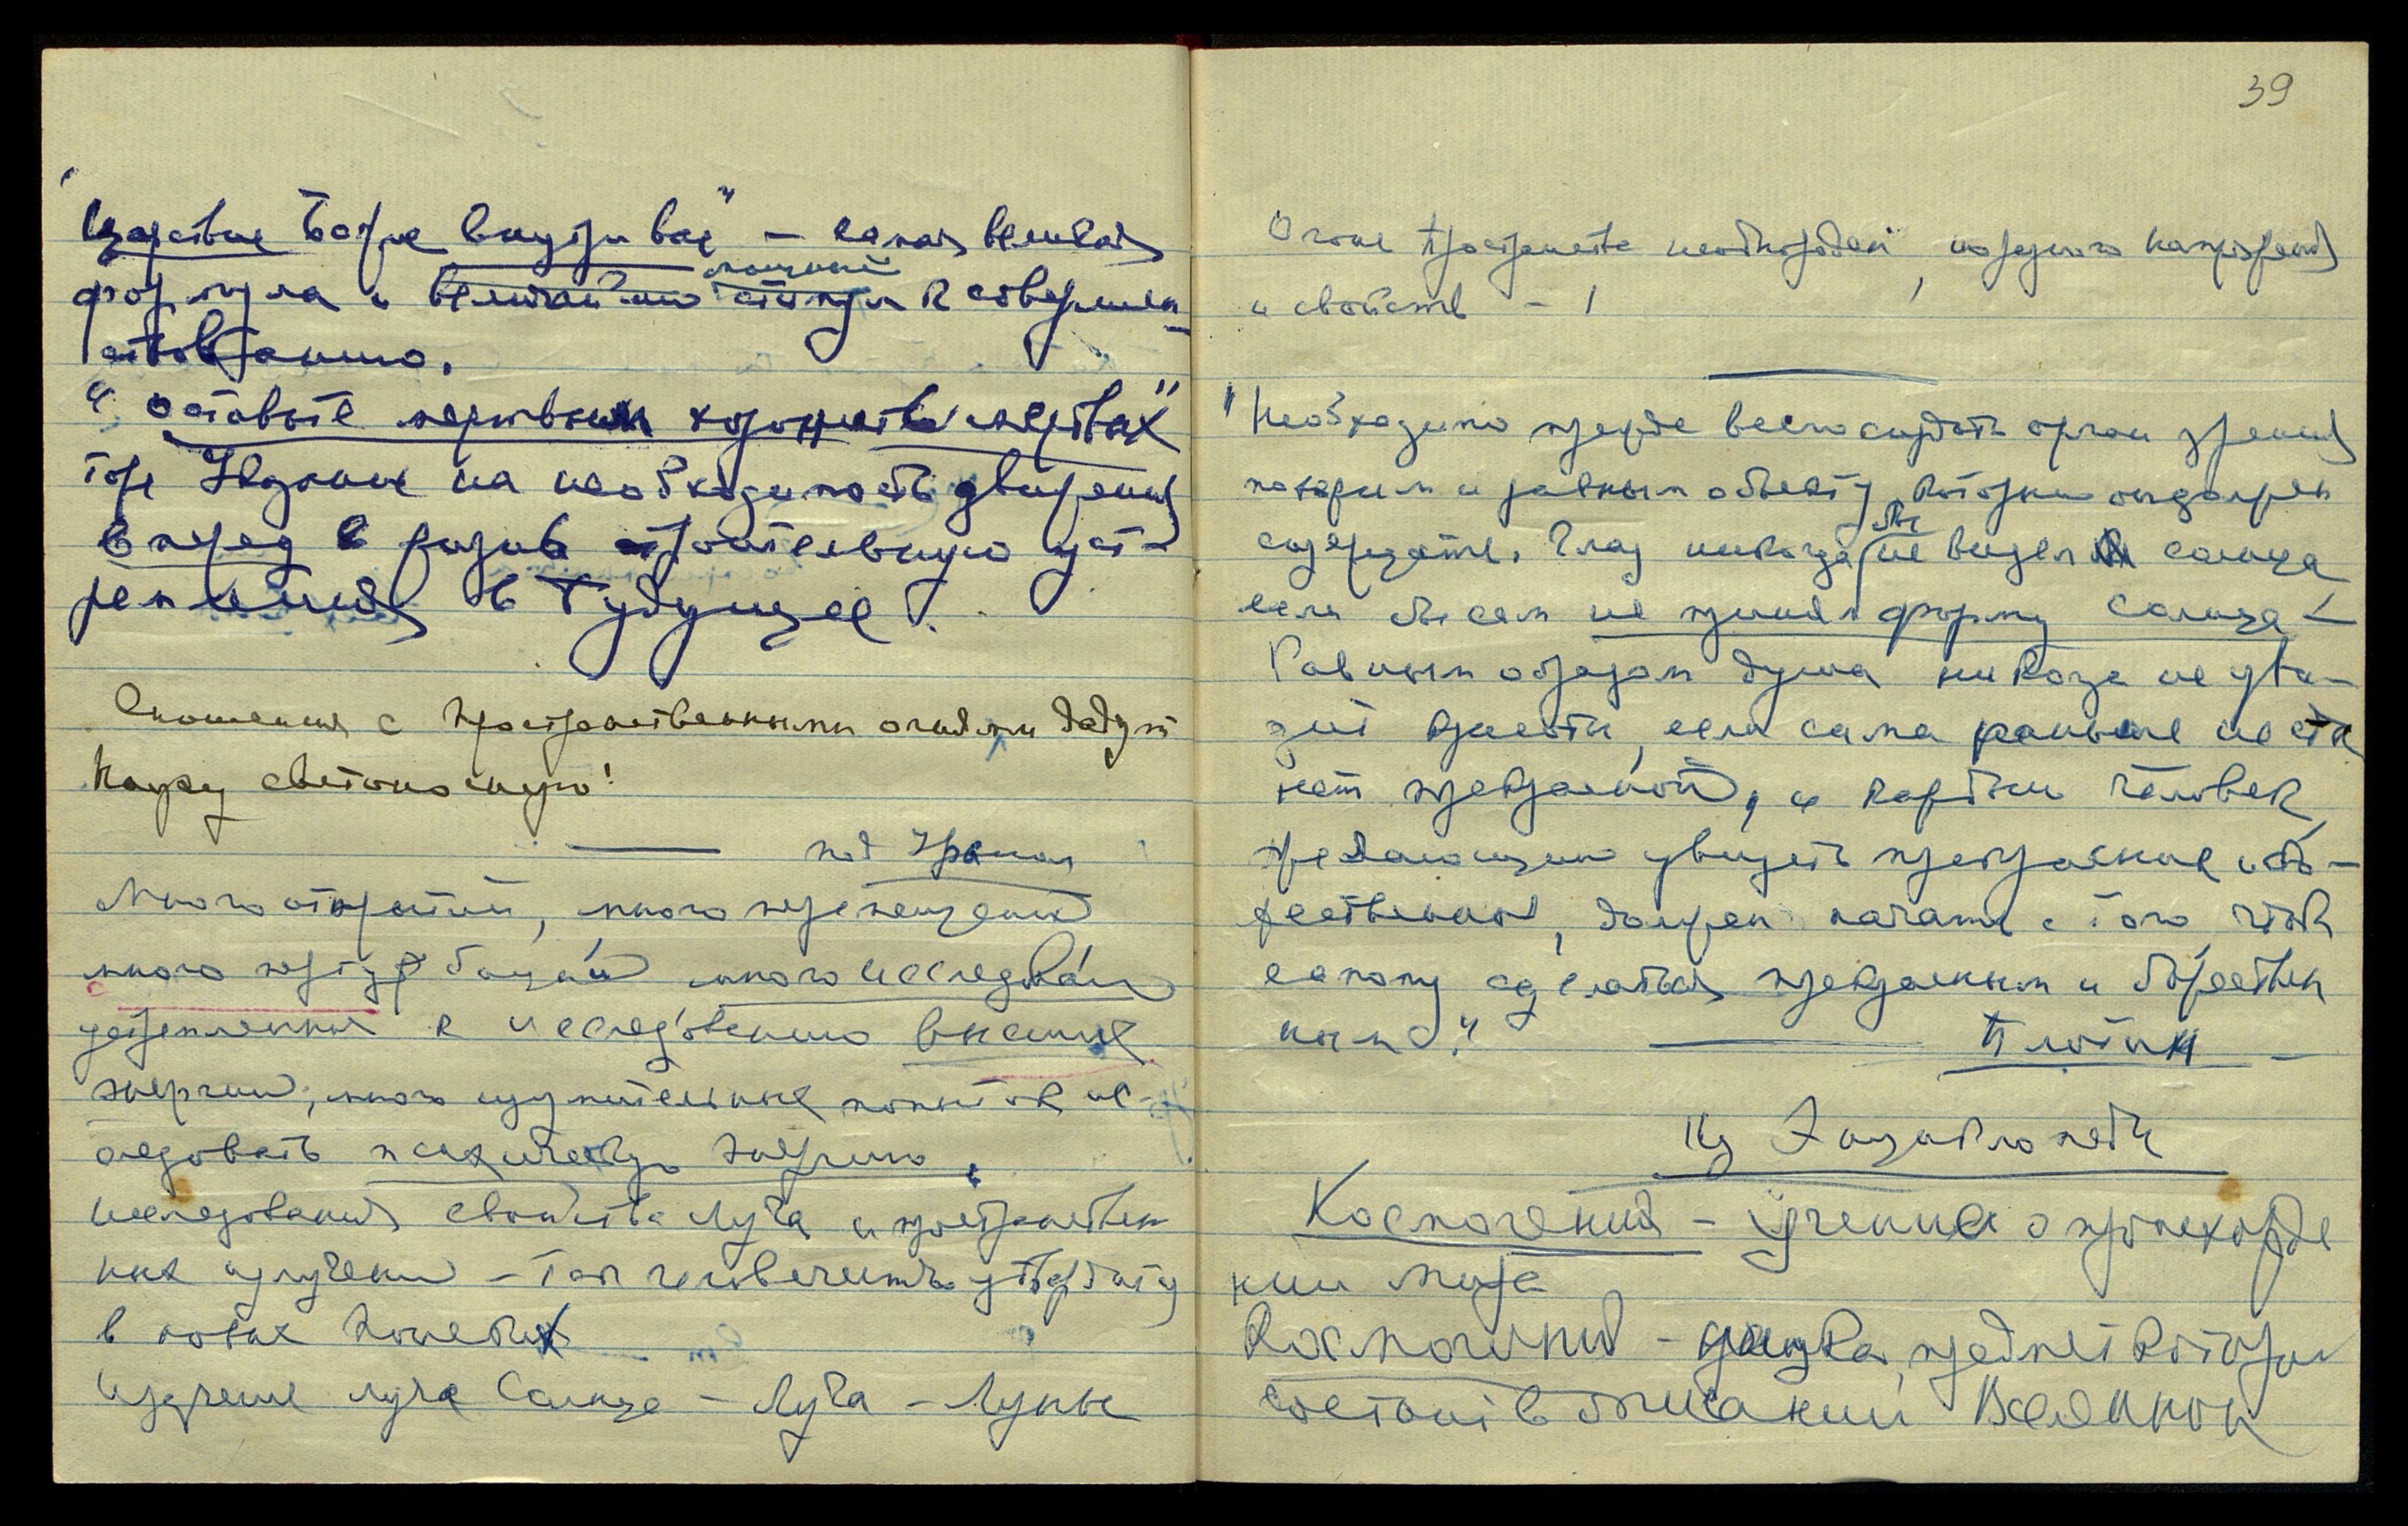 "Царствие Божие внутри вас" – самая великая
формула и величайший мощный стимул к совершен-
ствованию.
"Оставьте мертвым хоронить мертвых"
тоже Указание на необходимость движения
вперед в строительную уст-
ремления в Будущее.
Сношения с пространственными огнями дадут
Науку светоносную!
под Ураном
Много открытий, много перемещений
много пертурбаций много исследован
устремленных к исследованию высших
энергий; много изумительных попыток ис-
следовать психическую энергию,
исследования свойства Луча и пространствен
ных излучений – Там человечество утвердит
в новых поисках
Изучение луча Солнца – Луча – Луны
39
Огонь Пространства неоднороден, разного напряжения
и свойств – !
"Необходимо прежде всего создать орган зрения
похожим и равным объекту который он должен
созерцать. Глаз никогда бы не видел солнца
если бы сам не принял форму Солнца –
Равным образом душа никогда не уви-
дит красоты, если сама раньше не ста
нет прекрасной, и каждый человек
желающий увидеть прекрасное и бо-
жественное, должен начать с того, чтоб
самому сделаться прекрасным и божествен
ным."
Плотин
Из Энциклопедии
Космогония – учение о происхожде
нии мира
Космогония – наука, предмет которой
состоит в описании Вселенной